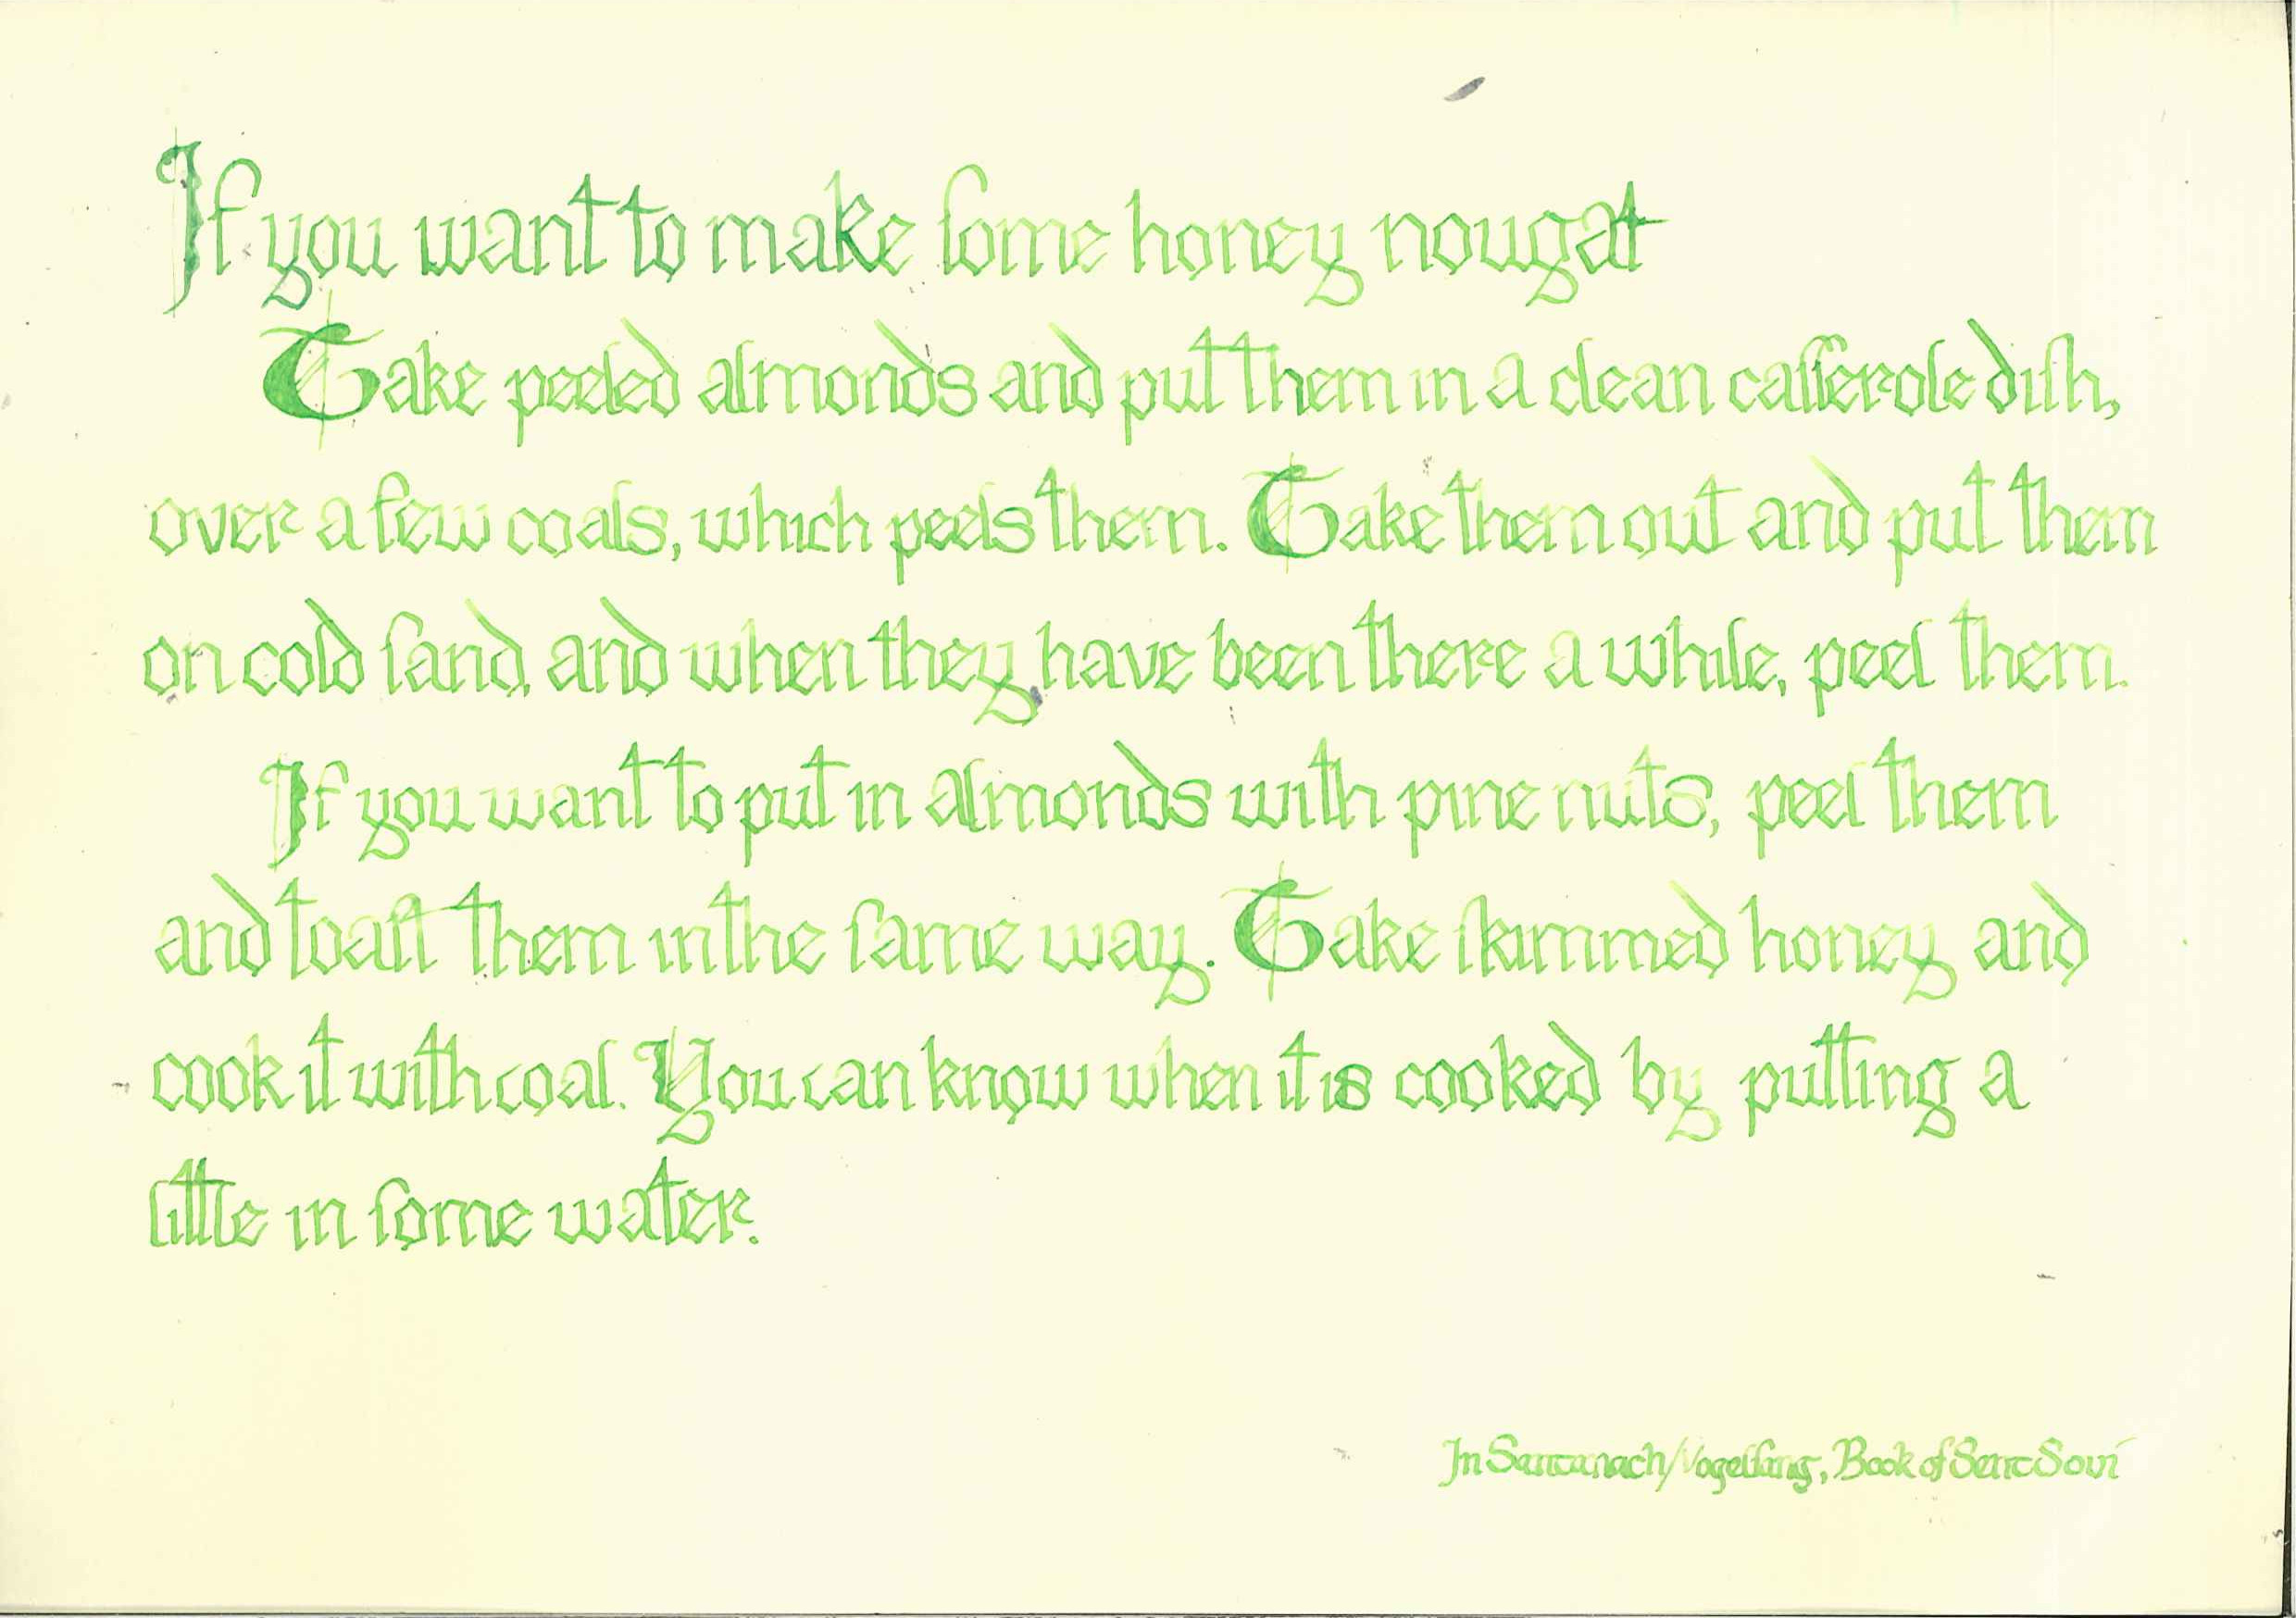 If you want to make ſome honey nougat
Take peeled almonds and put them in a clean caſſerole diſh,
over a few coals, which peels them. Take them out and put them
on cold ſand, and when they have been there a while, peel them.
If you want to put in almonds with pine nuts, peel them
and toaſt them in the ſame way. Take ſkimmed honey and
cook it with coal. You can know when it is cooked by putting a
little in ſome water.
In Santanach/Vogelſang, Book of Sent Soví